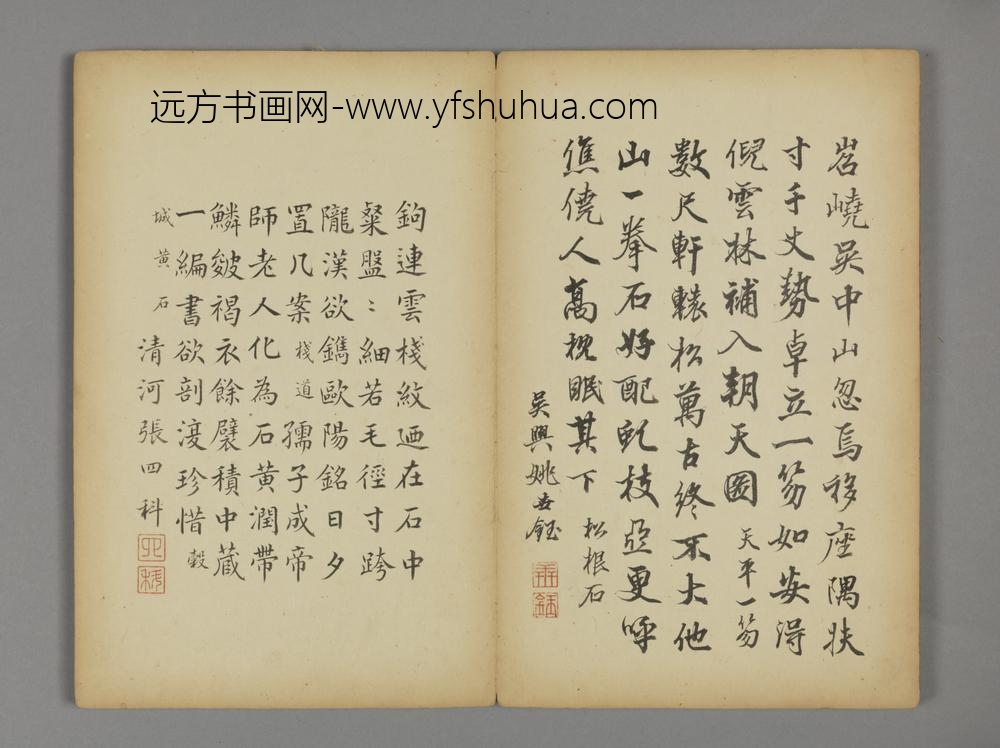 远方书画网-www.yfshuhua.com
岧嶢吳中山忽焉移座隅扶
寸手丈勢卓立一笏如安得
倪雲林補入朝天圖天平一笏
數尺軒轅松萬古終不大他
山一拳石好配虬枝亞更呼
僬僥人蒿枕眠其下松根石
吳興姚世鈺
鉤連雲棧紋迺在石中
粲盤〻細若毛徑寸跨
隴漢欲鐫歐陽銘日夕
置几案棧道孺子成帝
師老人化為石黃潤帶
鱗皴褐衣餘襞積中蔵
一編書欲剖湲珍惜榖
城黄石
清河張四科